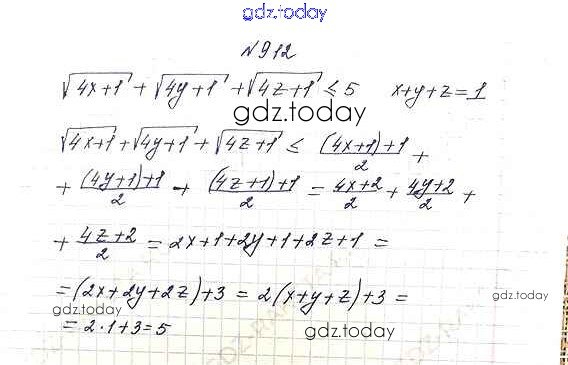 gdz.today
№912
√4x+1 + √4y+1 + √4z+1 ≤ 5 x+y+z=1
gdz.today
√4x+1 + √4y+1 + √4z+1 ≤ (4x+1)+1/2 +
+ (4y+1)+1/2 + (4z+1)+1/2 = 4x+2/2 + 4y+2/2 +
+ 4z+2/2 = 2x+1+2y+1+2z+1 =
=(2x+2y+2z)+3 = 2(x+y+z)+3 =
gdz.today gdz.today
= 2·1+3=5 gdz.today